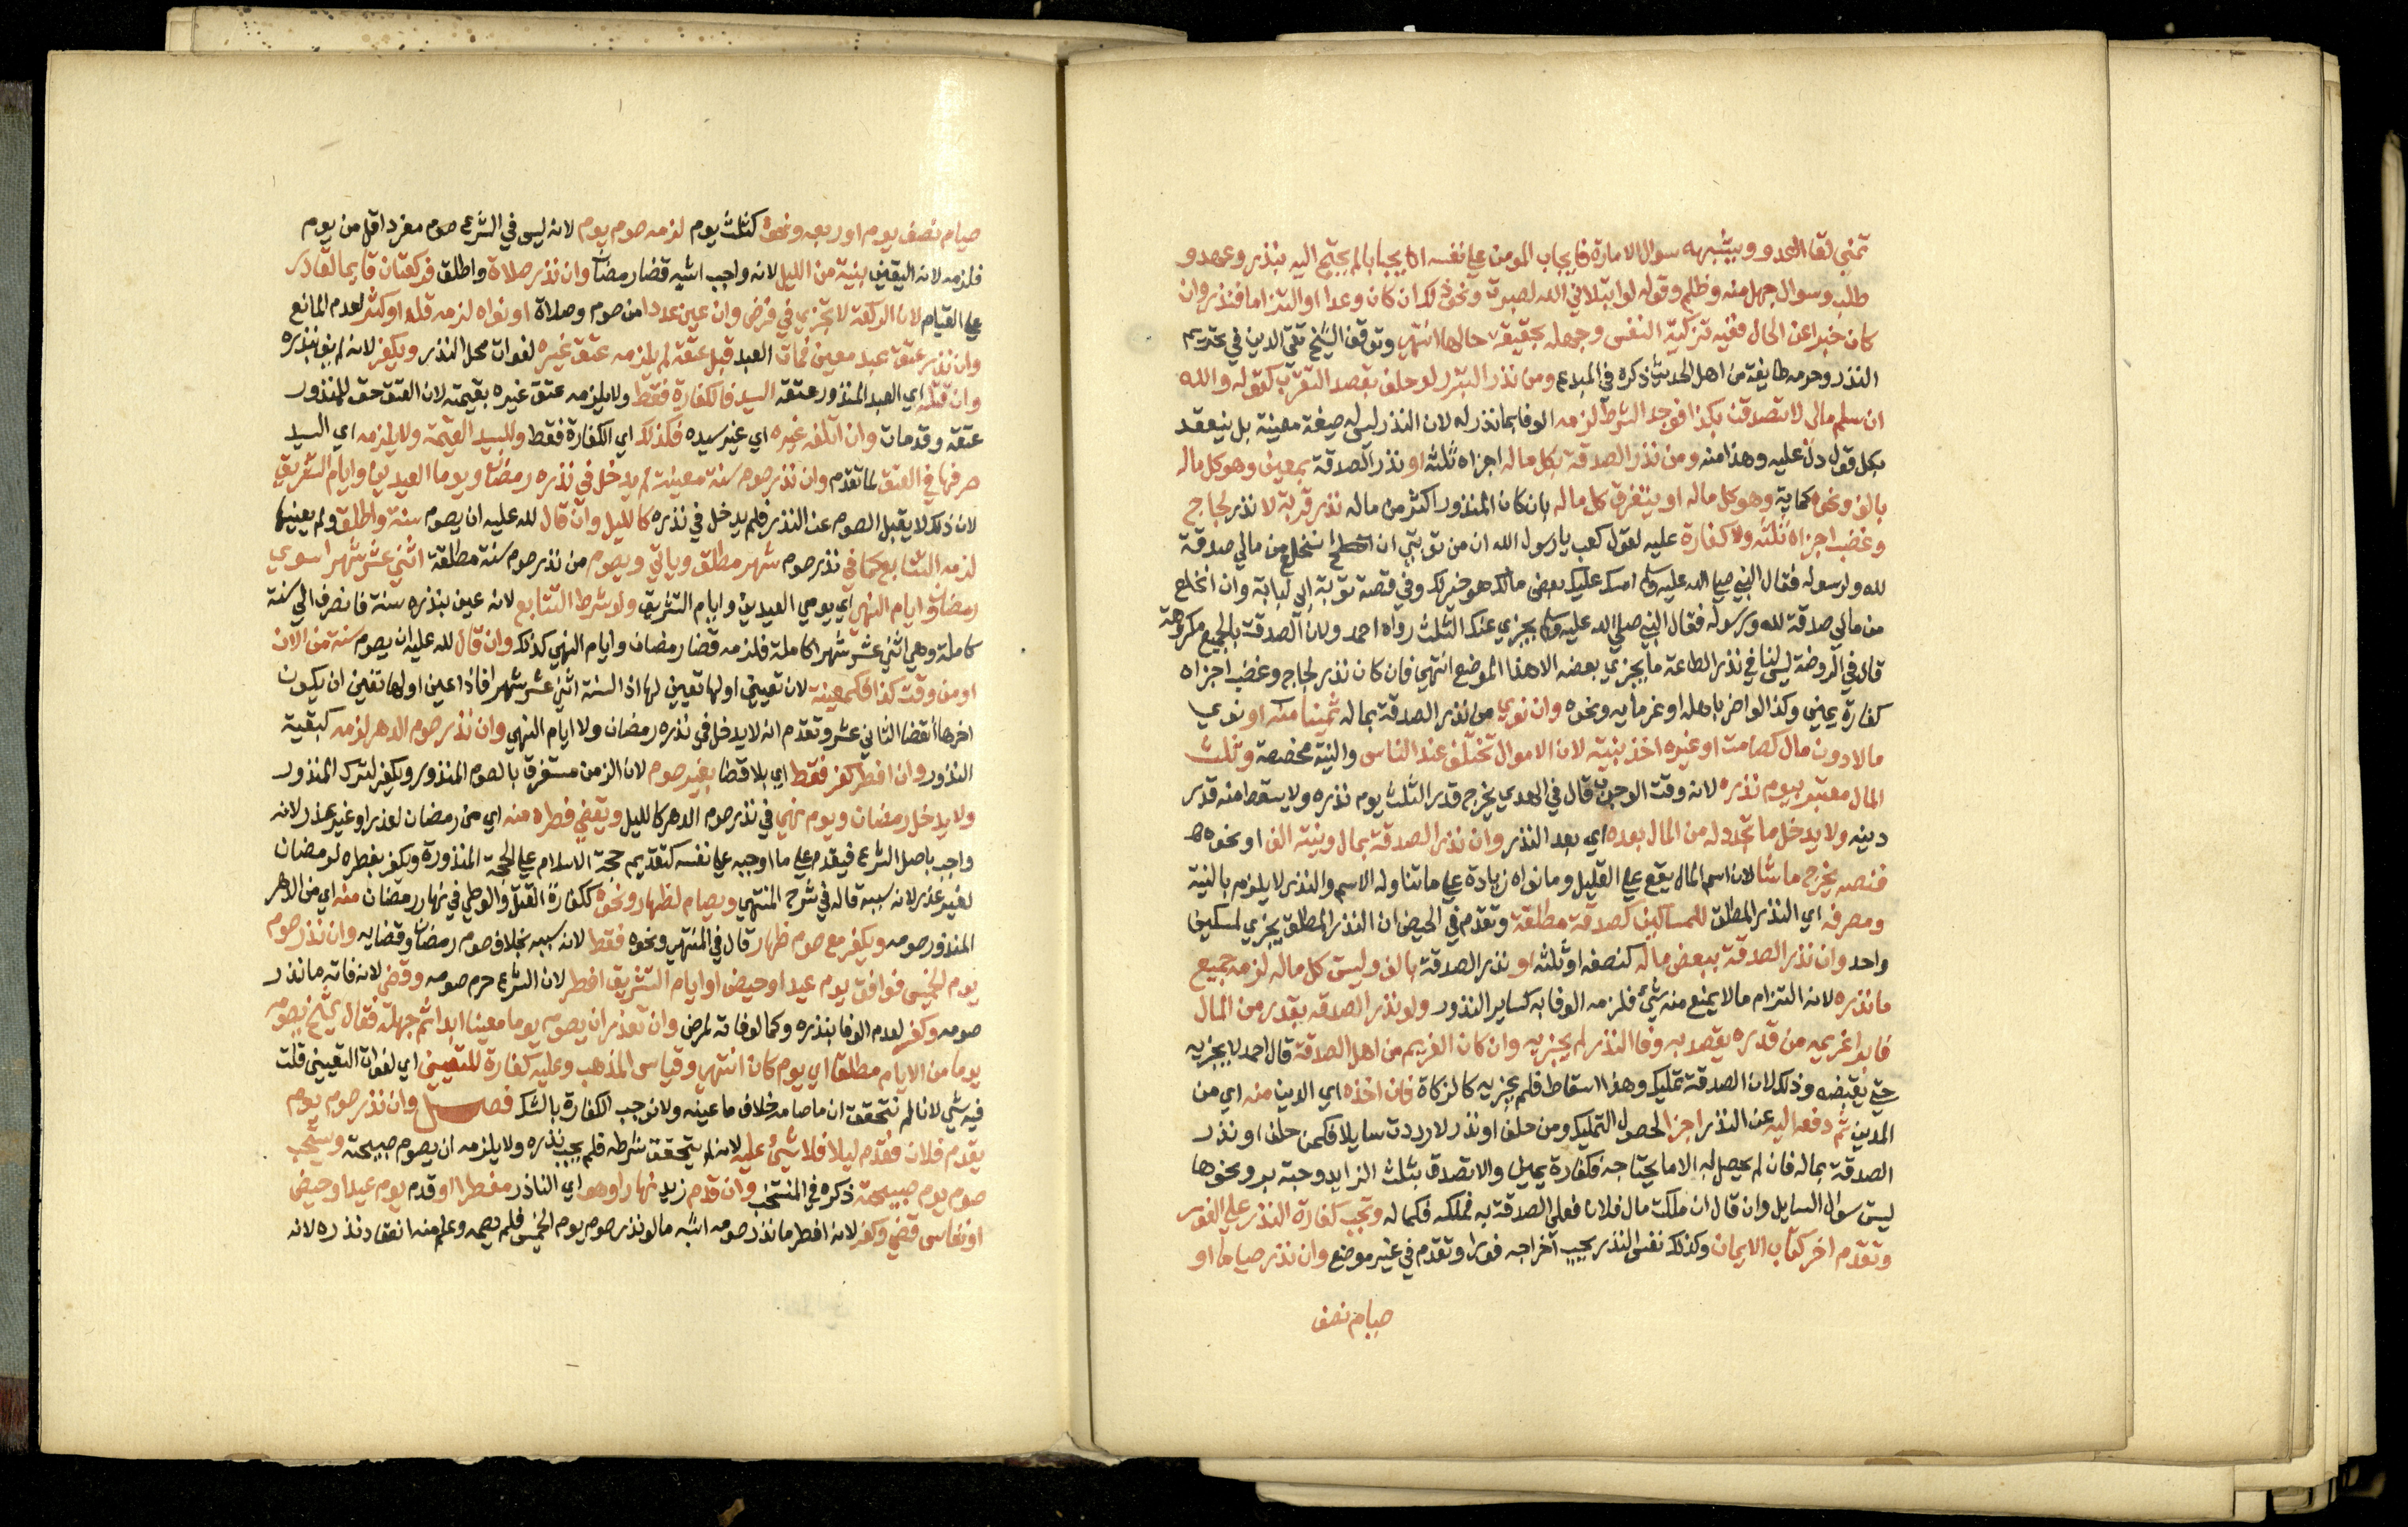 تمني لقا العدو ويشبهه سوال الامارة فايجاب المومن علي نفسه ايجابا لم يحتج اليه بنذر وعهد و
طلب وسوال جهل منه وظلم وقوله لو ابتلاني الله لصبرت ونحو ذلك ان كان وعدا او التزاما فنذر وان
كان خبرا عن الحال ففيه تزكية النفس وجهله بحقيقة حالها انتهي وتوقف الشيخ تقي الدين في تحريم
النذر وحرمه طايفة من اهل الحديث ذكره في المبدع ومن نذر التبرر لو حلف بقصد التقرب كقوله والله
ان سلم مالي لاتصدقن بكذا فوجد الشرط لزمه الوفا بما نذر له لان النذر ليس له صيغة معينة بل ينعقد
بكل قول دل عليه وهذا منه ومن نذر الصدقة بكل ماله اجزاه ثلثه او نذر الصدقة بمعين وهو كل ماله
بالف ونحوه كماية وهو كل ماله او يستغرق كل ماله بان كان المنذور اكثر من ماله نذر قربة لا نذر لجاج
وغضب اجزاه ثلثه ولا كفارة عليه لقول كعب يا رسول الله ان من توبتي ان انخلع من مالي صدقة
لله ولرسوله فقال النبي صلي الله عليه وسلم امسك عليك بعض مالك هو خير لك وفي قصة توبة ابي لبابة وان انخلع
من مالي صدقة لله ورسوله فقال النبي صلي الله عليه وسلم يجزي عنك الثلث رواه احمد ولان الصدقة بالجميع مكروهة
قال في الروضة ليس لنا في نذر الطاعة ما يجزي بعضه الا هذا الموضع انتهي فان كان نذر لجاج وغضب اجزاه
كفارة يمين وكذا لو اضر باهله او غرمايه ونحوه وان نوي من نذر الصدقة بماله ثمينا منه او نوي
مالا دون مال كصامت او غيره اخذ بنيته لان الاموال تختلف عند الناس والنية مخصصة وثلث
المال معتبر بيوم نذره لانه وقت الوجوب قال في الهدي يخرج قدر الثلث يوم نذره ولا يسقط منه قدر
دينه ولا يدخل ما تجدد له من المال بعده اي بعد النذر وان نذر الصدقة بمال ونيته الف او نحوها
فنصه يخرج ما شا لان اسم المال يقع علي القليل وما نواه زيادة علي ما تناوله الاسم والنذر لا يلزم بالنية
ومصرفه اي النذر المطلق للمساكين كصدقة مطلقة وتقدم في الحيض ان النذر المطلق يجزي لمسكين
واحد وان نذر الصدقة ببعض ماله كنصفه او ثلثه او نذر الصدقة بالف وليس كل ماله لزمه جميع
ما نذره لانه التزام مالا يمنع منه شي فلزمه الوفا به كساير النذور ولو نذر الصدقة بقدر من المال
فابرا غريمه من قدره يقصد به وفا النذر لم يجزيه وان كان الغريم من اهل الصدقة قال احمد لا يجزيه
حتي يقبضه وذلك لان الصدقة تمليك وهذا اسقاط فلم يجزيه كالزكاة فان اخذه اي الدين منه اي من
المدين ثم دفعه اليه عن النذر اجزا لحصول التمليك ومن حلف او نذر لارددت سايلا فكمن حلف او نذر
الصدقة بماله فان لم يحصل له الا ما يحتاجه فكفارة يمين والا تصدق بثلث الزايد وحبة بر ونحوها
ليس سؤال السايل وان قال ان ملكت مال فلان فعلي الصدقة به فملكه فكماله وتجب كفارة النذر علي الفور
وتقدم اخر كتاب الايمان وكذلك نفس النذر يجب اخراجه فورا وتقدم في غير موضع وان نذر صياما او
صيام نصف
صيام نصف يوم او ربعه ونحوه كثلث يوم لزمه صوم يوم لانه ليس في الشرع صوم مفرد اقل من يوم
فلزمه لانه اليقين بنية من الليل لانه واجب اشبه قضا رمضان وان نذر صلاة واطلق فركعتان قايما لقادر
علي القيام لان الركعة لا تجزي في فرض وان عين عددا من صوم وصلاة او نواه لزمه قل او كثر لعدم المانع
وان نذر عتق عبد معين فمات العبد قبل عتقه لم يلزمه عتق غيره لفوات محل النذر ويكفر لانه لم يف بنذره
وان قتله اي العبد المنذور عتقه السيد فالكفارة فقط ولا يلزمه عتق غيره بقيمته لان العتق حق للمنذور
عتقه وقد مات وان اتلفه غيره اي غير سيده فكذلك اي الكفارة فقط وللسيد القيمة ولا يلزمه اي السيد
صرفها في العتق لما تقدم وان نذر صوم سنة معينة لم يدخل في نذره رمضان ويوما العيدين وايام التشريق
لان ذلك لا يقبل الصوم عن النذر فلم يدخل في نذره كالليل وان قال لله عليه ان يصوم سنة واطلق ولم يعينها
لزمه التتابع كما في نذر صوم شهر مطلق وياتي ويصوم من نذر صوم سنة مطلقة اثني عشر شهرا سوي
رمضان وايام النهي اي يومي العيدين وايام التشريق ولو شرط التتابع لانه عين بنذره سنة فانصرف الي سنة
كاملة وهي اثني عشر شهرا كاملة فلزمه قضا رمضان وايام النهي كذلك وان قال لله عليه ان يصوم سنة من الان
او من وقت كذا فكمعينة لان تعيين اولها تعيين لها اذ السنة اثني عشر شهرا فاذا عين اولها تعين ان يكون
اخرها انقضا الثاني عشر وتقدم انه لا يدخل في نذره رمضان ولا ايام النهي وان نذر صوم الدهر لزمه كبقية
النذور وان افطر كفر فقط اي بلا قضا بغير صوم لان الزمن مستغرق بالصوم المنذور ويكفر لترك المنذور
ولا يدخل رمضان ويوم نهي في نذر صوم الدهر كالليل ويقضي فطره منه اي من رمضان لعذر او غير عذر لانه
واجب باصل الشرع فيقدم علي ما اوجبه علي نفسه كتقديم حجة الاسلام علي الحجة المنذورة ويكفر بفطره لرمضان
لغير عذر لانه سببه قاله في شرح المنتهي ويصام لظهار ونحوه ككفارة القتل والوطي في نهار رمضان منه اي من الدهر
المنذور صومه ويكفر مع صوم ظهار قال في المنتهي ونحوه فقط لانه سببه بخلاف صوم رمضان وقضايه وان نذر صوم
يوم الخميس فوافق يوم عيد او حيض او ايام التشريق افطر لان الشرع حرم صومه وقضي لانه فاته ما نذر
صومه وكفر لعدم الوفا بنذره وكما لو فاته لمرض وان نذر ان يصوم يوما معينا ابدا ثم جهله فقال الشيخ يصوم
يوما من الايام مطلقا اي يوم كان انتهي وقياس المذهب وعليه كفارة للتعيين اي لفوات التعيين قلت
فيه شي لانا لم نتحقق ان ما صامه خلاف ما عينه ولا نوجب الكفارة بالشك فصل وان نذر صوم يوم
يقدم فلان فقدم ليلا فلا شي عليه لانه لم يتحقق شرطه فلم يجب نذره ولا يلزمه ان يصوم صبيحته ويستحب
صوم يوم صبيحته ذكره في المنتخب وان قدم زيد نهارا وهو اي الناذر مفطر او قدم يوم عيد او حيض
او نفاس قضي وكفر لانه افطر ما نذر صومه اشبه ما لو نذر صوم يوم الخميس فلم يصمه وعلم منه انعقاد نذره لانه